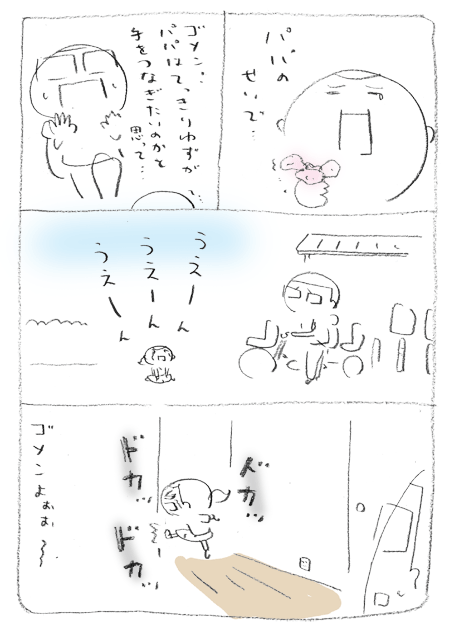 パパの
せいで…
ゴメン…
パパはてっきりゆずが
手をつなぎたいのかと
思って…
うえーん
うえーん
うえーん
ドカッ
ドカッ
ドカッ
ゴメンよぉぉ